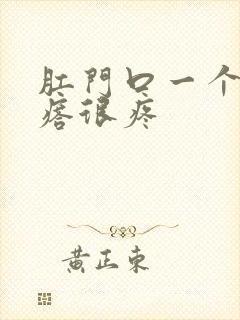 肛門口一个
瘩很疼
黄正東